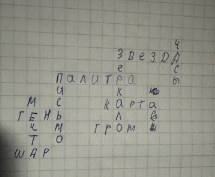 Ч
ЗВЕЗДА
Е С
ПАЛИТРА Ы
И К
М С КАРТА
ТЕНЬ Л В
Ч М ГРОМ
Т О
ШАР